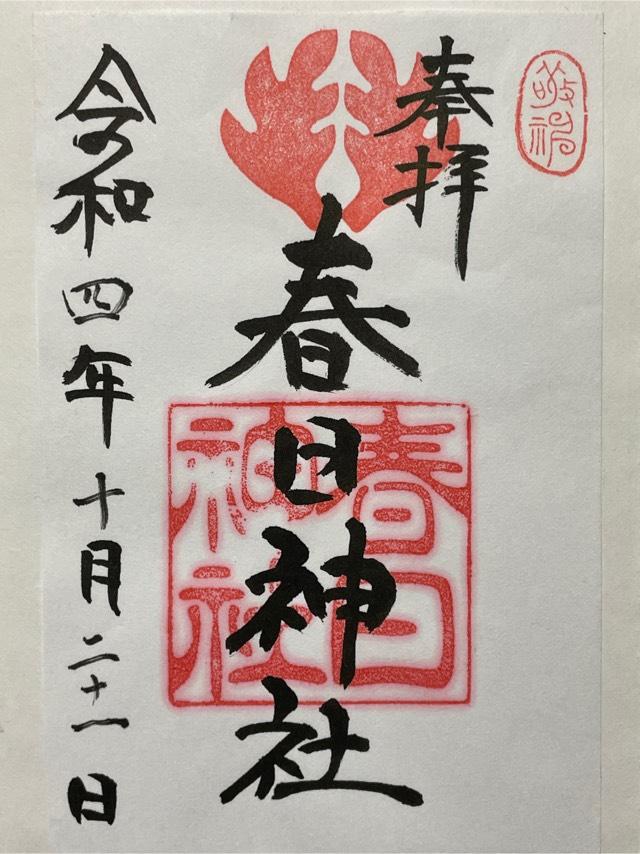 敬神
奉拝
春日神社
春日
神社
令和四年十月二十一日